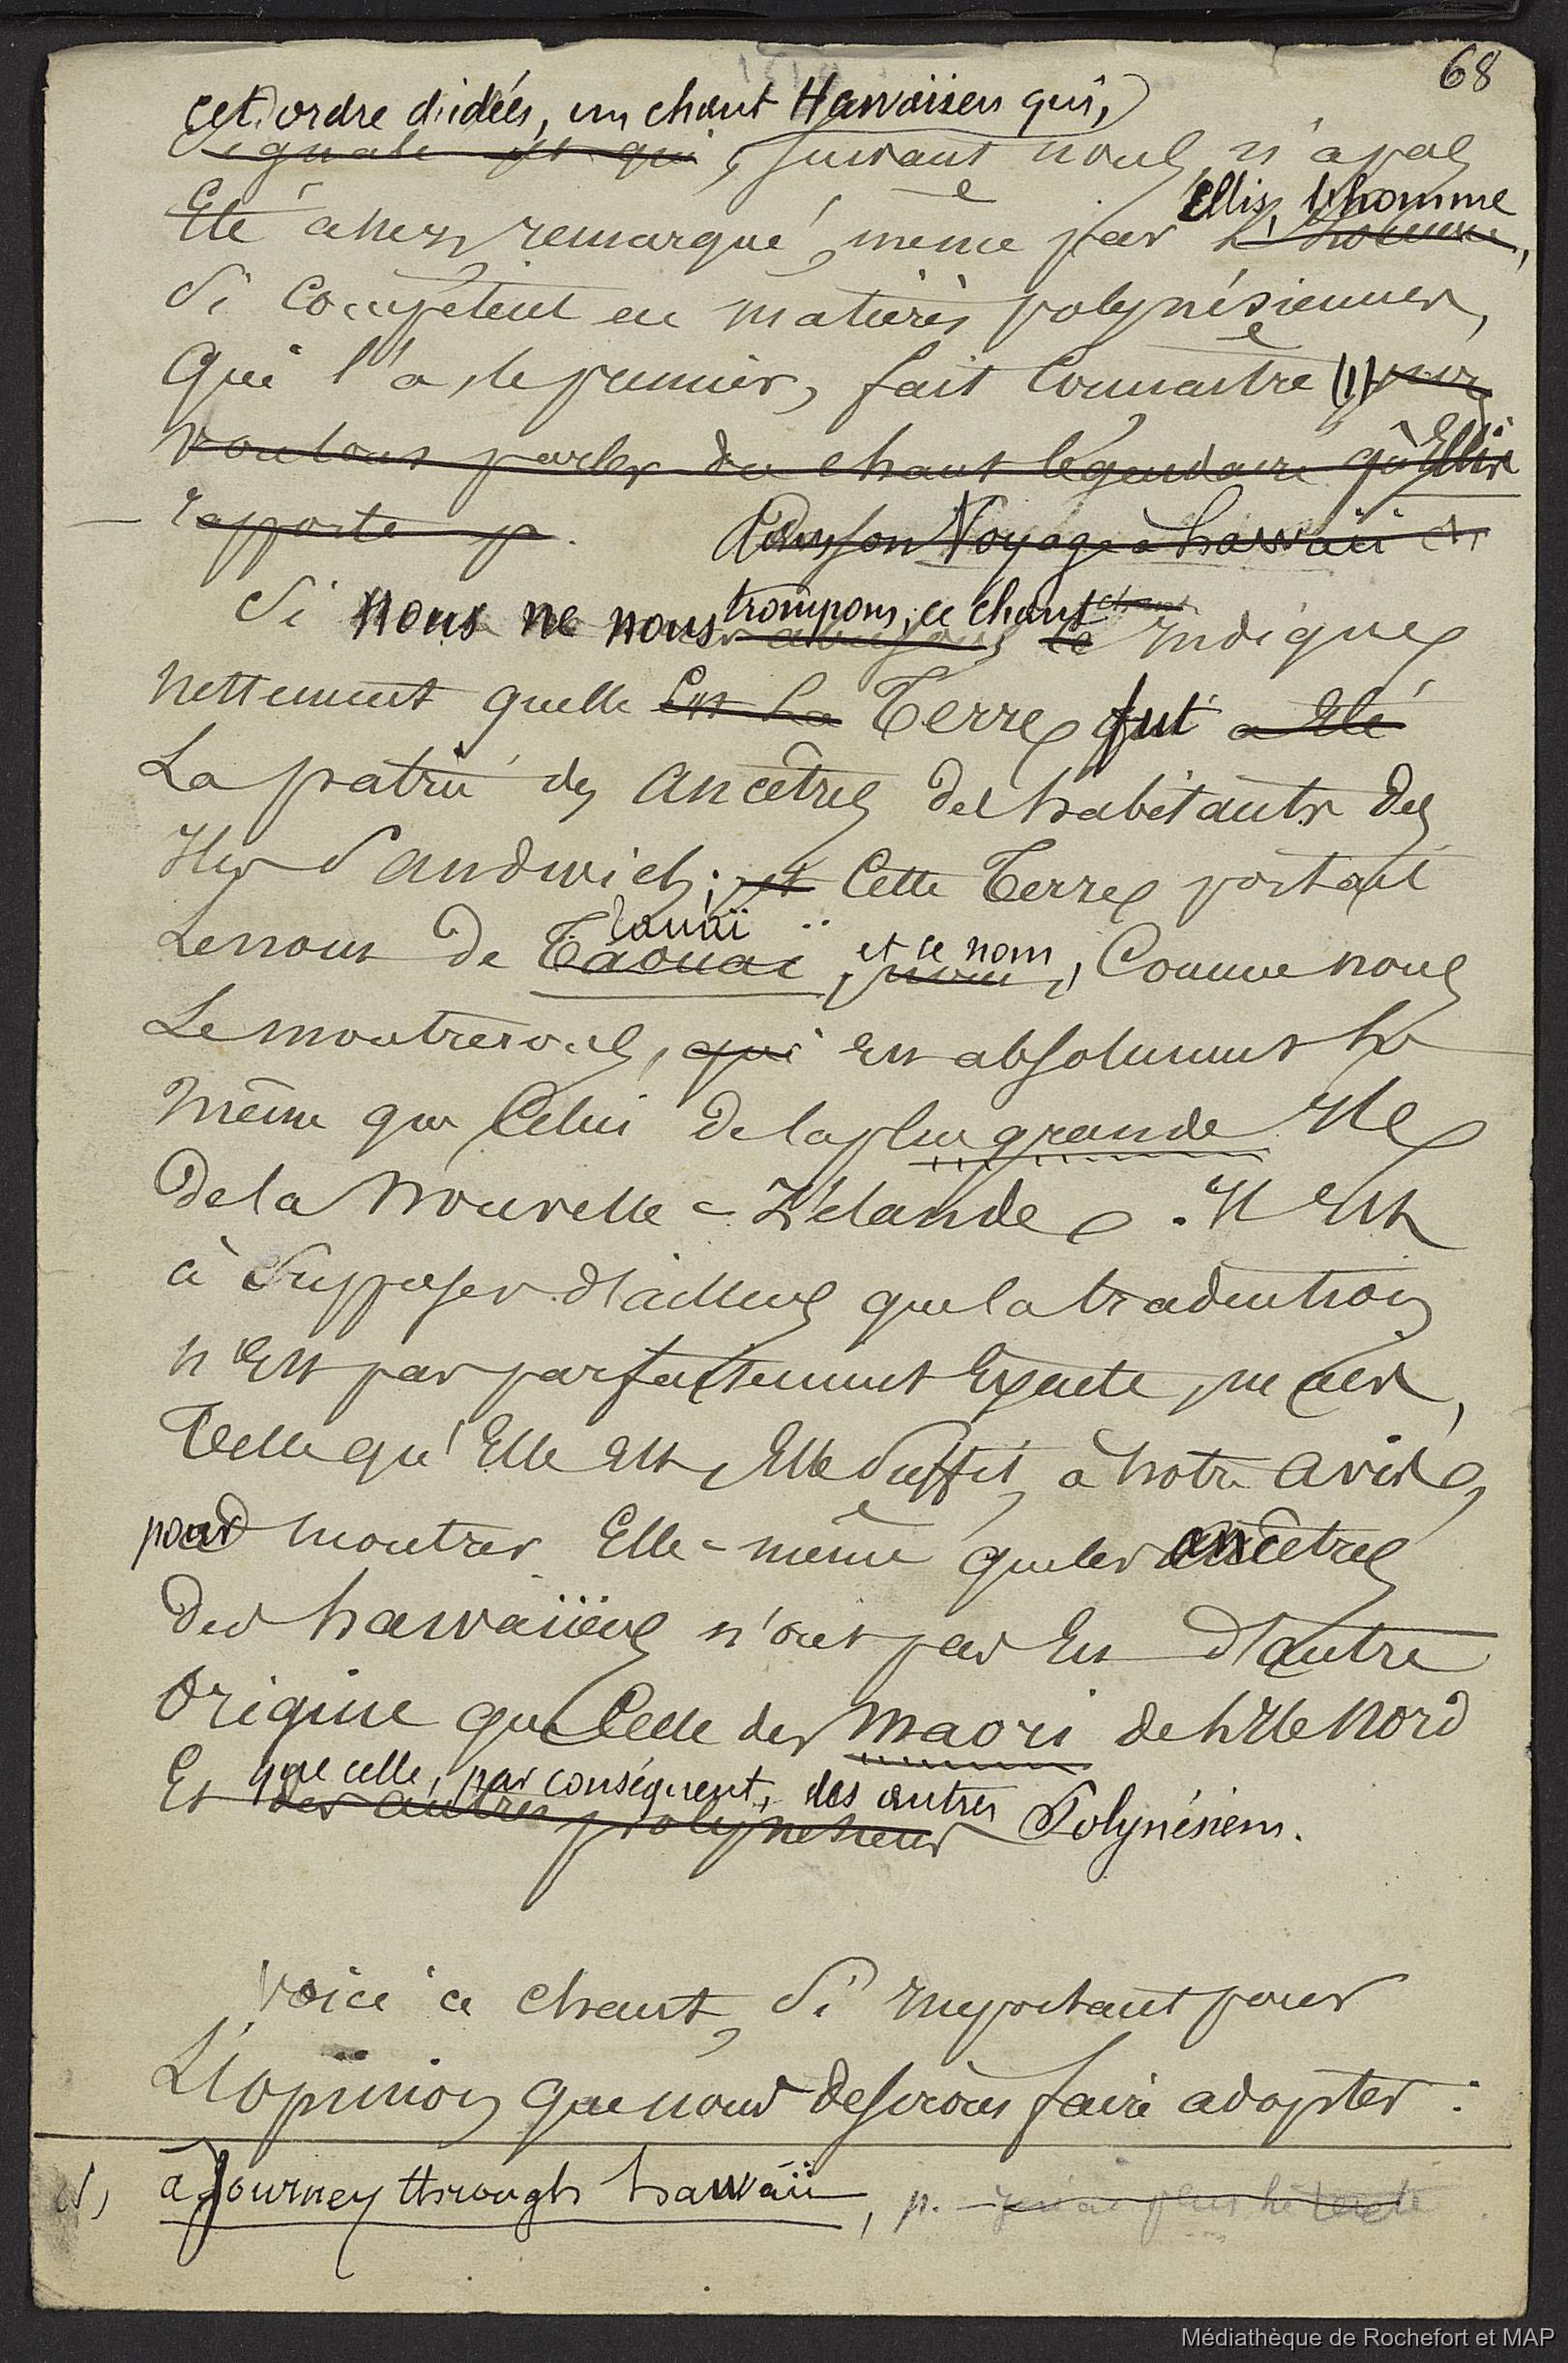 68
cet ordre d'idées, un chant Hawaiien qui,
signale et qui, suivant nous, n'a pas
Ellis, l'homme
été assez remarqué, même par l'homme,
si compétent en matières polynésiennes,
qui l'a, le premier, fait connaître (1)
voulons parler du chant légendaire qu'Ellis
rapporte p. dans son Voyage à hawaii
trompons, ce chant chant
Si nous ne nous le indique
nettement quelle est la Terre fut a été
La patrie des ancêtres des habitants des
Iles Sandwich; et Cette Terre portait
Taouaï et ce nom
Le nom de Taouaï, nom, Comme nous
Le montrerons, qui est absolument le
même que Celui de la plus grande Ile
de la Nouvelle-Zélande. Il est
à supposer d'ailleurs que la traduction
n'est pas parfaitement Exacte, mais,
Telle qu'Elle est, Elle suffit, à notre avis,
pour montrer Elle-même que les ancêtres
des hawaiiens n'ont pas eu d'autre
Origine que Celle des Maori de l'Ile Nord
que celle, par conséquent, des autres
Et des autres polynésiens Polynésiens.
Voici ce chant, si important pour
L'opinion que nous desirons faire adopter :
(1) a Journey through hawaii, p.
Médiathèque de Rochefort et MAP